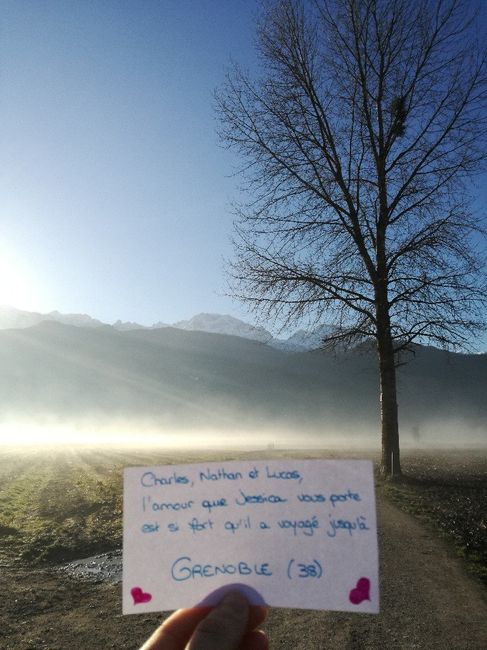 Charles, Nathan et Lucas,
l'amour que Jessica vous porte
est si fort qu'il a voyagé jusqu'à
GRENOBLE (38)